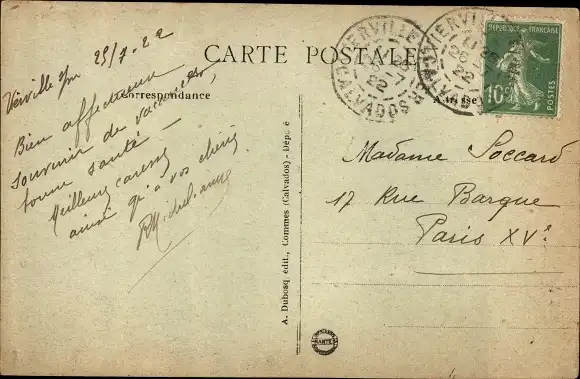 CARTE POSTALE
Correspondance
Vierville s/m 25/7-22
Bien affectueux
souvenir de vacances,
bonne santé —
Meilleures caresses
ainsi qu'à vos chéris
A. Dubosq édit., Commes (Calvados) - Déposé
VIERVILLE
CALVADOS
VIERVILLE
CALVADOS
REPUBLIQUE FRANÇAISE
10c
POSTES
Adresse
Madame Soccard
17 Rue Bargue
Paris XVe
NANTES